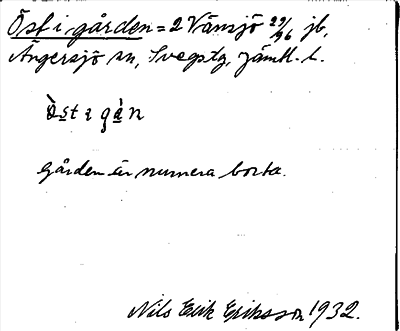 Öst i gården = 2 Vänsjö 29/96 jb,
Ängersjö sn, Svegs tg, Jämtl. l.
òst ɩ gàn
Gården är numera borta.
Nils Erik Eriksson 1932.